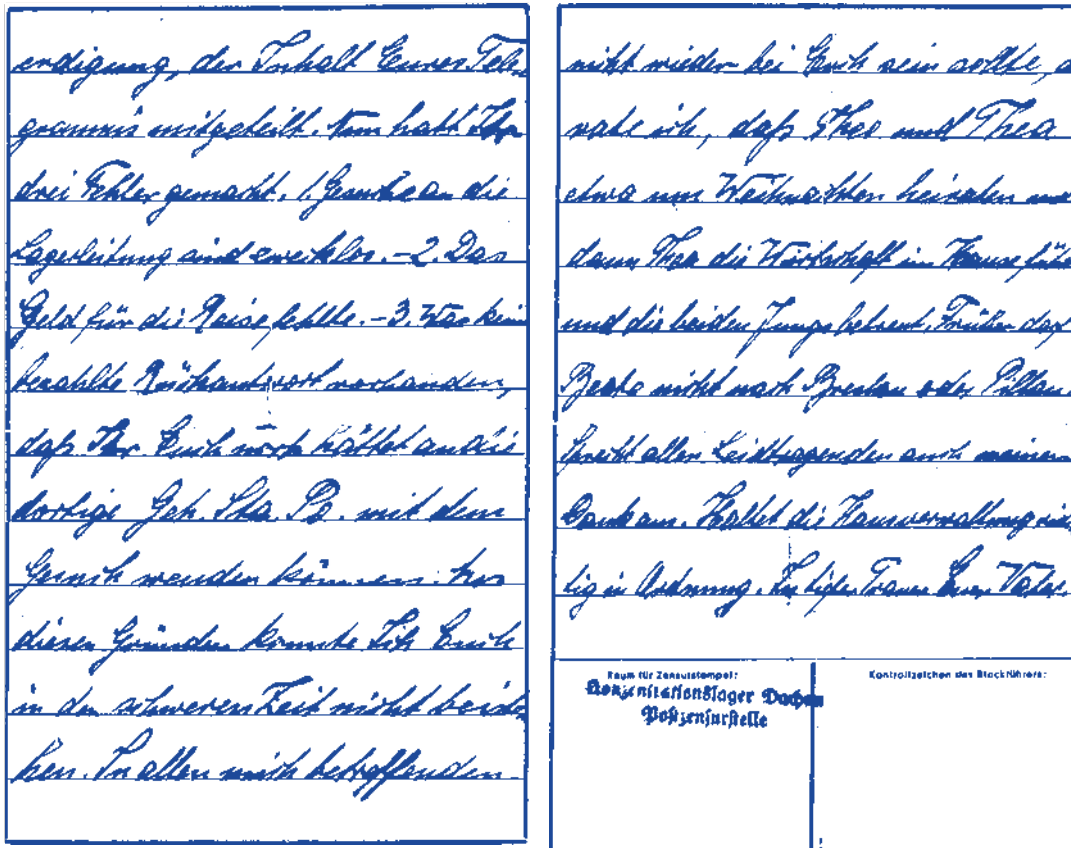 erdigung, der Inhalt Eures Tele
gramms mitgeteilt. Nun habt Ihr
drei Fehler gemacht. 1. Gesuche an die
Lagerleitung sind zwecklos. - 2. Das
Geld für die Reise fehlte. - 3. War keine
bezahlte Rückantwort vorhanden,
daß Ihr Euch noch hättet an die
dortige Geh. Sta. Po. mit dem
Gesuch wenden können. Aus
diesen Gründen konnte Ich Euch
in der schweren Zeit nicht beiste
hen. In allen mich betreffenden
nicht wieder bei Euch sein sollte,
rate ich, daß Theo und Thea
etwa um Weihnachten heiraten und
dann Thea die Wirtschaft im Hause füh
und die beiden Jungs betreut. Früher darf
Beate nicht nach Breslau oder Pillau
Sprecht allen Leidtragenden auch meinen
Dank aus. Haltet die Hausverwaltung
tig in Ordnung. In tiefer Trauer Euer Vater.
Raum für Zensurstempel:
Kontrollzeichen des Blockführers:
Konzentrationslager Dachau
Postzensurstelle